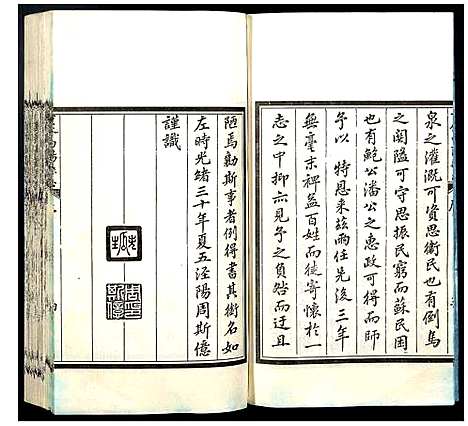 泉之灌溉可資思衛民也有倒馬
之關隘可守思振民窮而蘇民困
也有鮑公潘公之惠政可得而師
予以　特恩来茲兩任先後三年
無毫末稗益百姓而徒寄懷於一
志之中抑亦見予之負咎而迂且
陋焉勷斯事者例得書其銜名如
左時光緒三十年夏五涇陽周斯億
謹識